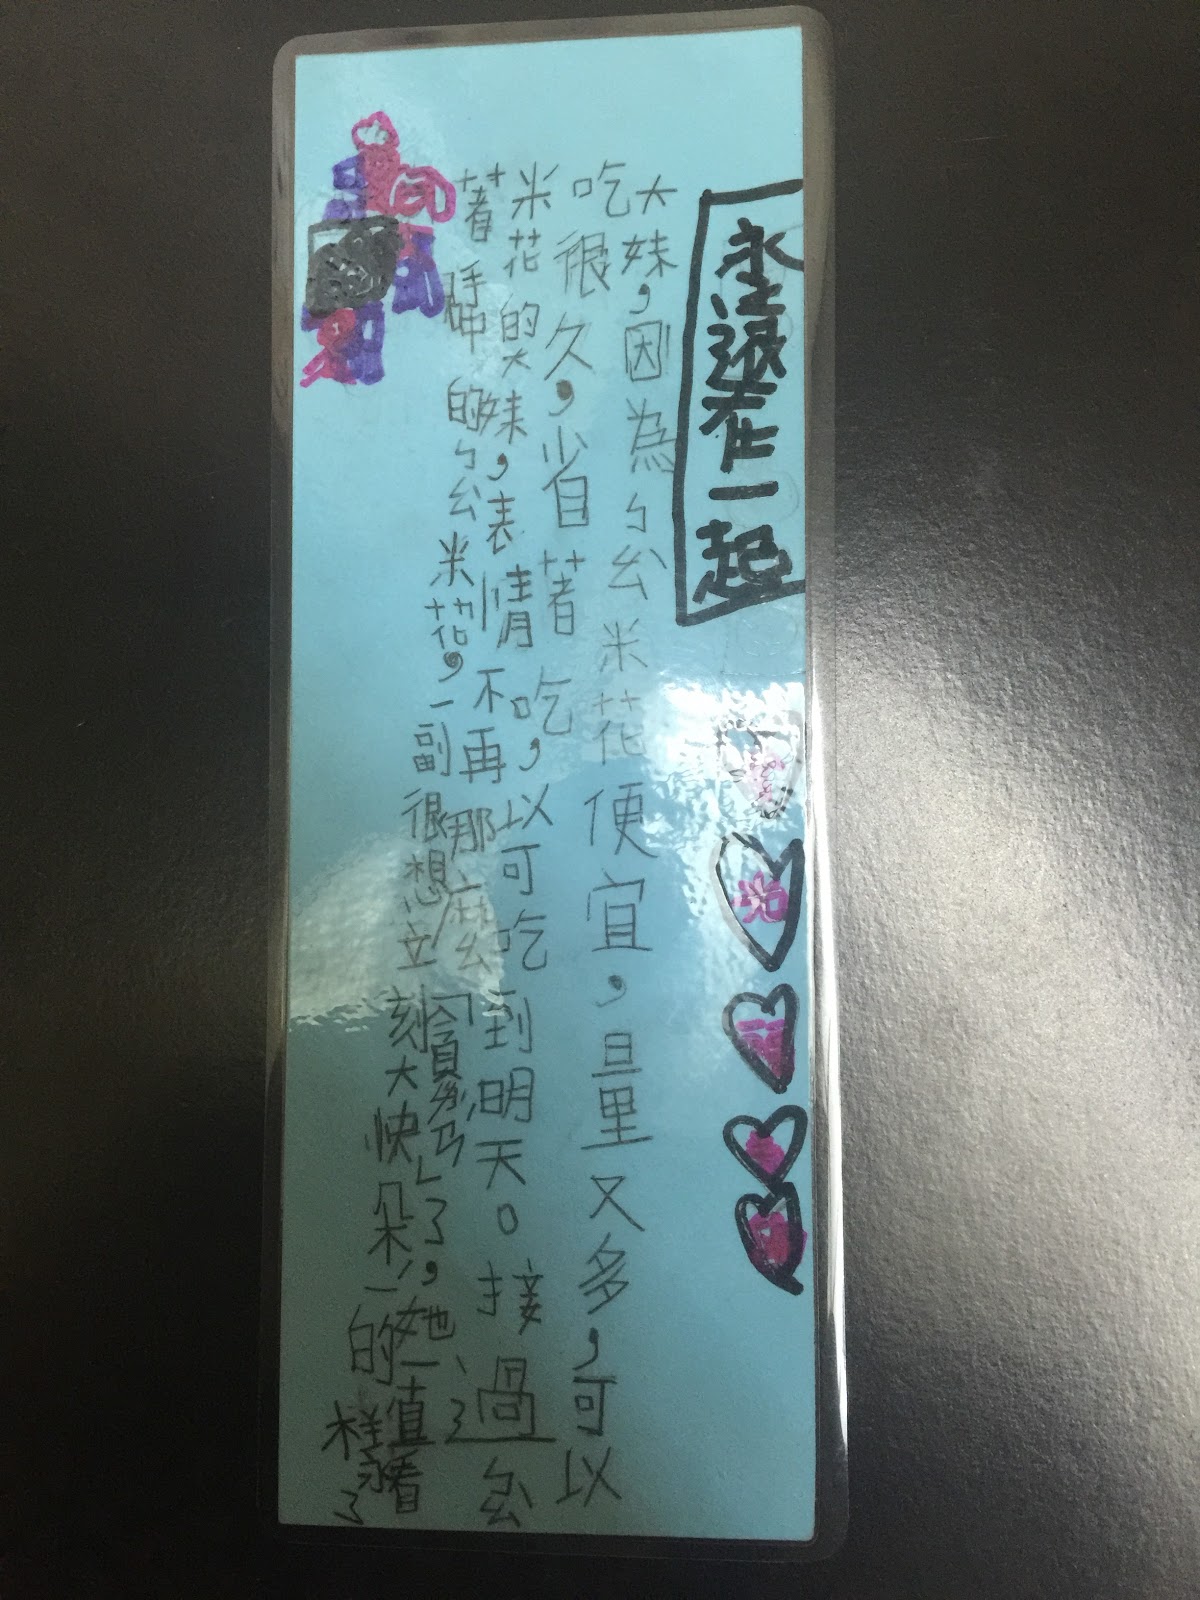 永遠在一起
大妹，因為ㄅㄠ米花便宜，量又多，可以
吃很久，省著吃，以可吃到明天。接過ㄅㄠ
米花的大妹，表情不再那麼「貪ㄌㄢˊ」了，她一值看
著的ㄅㄠ米花，一副很想立刻大快朵一的樣